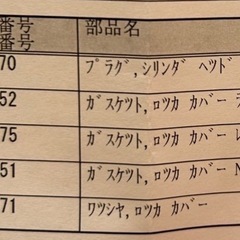 番号 部品名
番号
70 ﾌﾟﾗｸﾞ,ｼﾘﾝﾀﾞ ﾍﾂﾄﾞ
52 ｶﾞｽｹﾂﾄ,ﾛﾂｶ ｶﾊﾞｰ
75 ｶﾞｽｹﾂﾄ,ﾛﾂｶ ｶﾊﾞｰ
51 ｶﾞｽｹﾂﾄ,ﾛﾂｶ ｶﾊﾞｰ N
71 ﾜﾂｼﾔ,ﾛﾂｶ ｶﾊﾞｰ